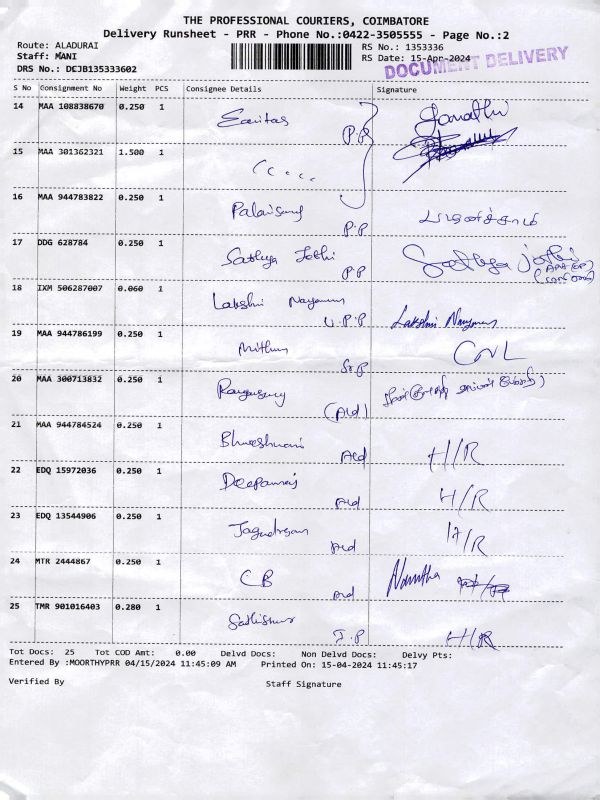 THE PROFESSIONAL COURIERS, COIMBATORE
Delivery Runsheet - PRR - Phone No.:0422-3505555 - Page No.:2
Route: ALADURAI RS No.: 1353336
Staff: MANI RS Date: 15-Apr-2024
DRS No.: DCJB135333602
DOCUMENT DELIVERY
S No Consignment No Weight PCS Consignee Details Signature
14 MAA 108838670 0.250 1 P.P
15 MAA 301362321 1.500 1
16 MAA 944783822 0.250 1 P.P
17 DDG 628784 0.250 1 Sathya Jothi P P Sathya Jothi
18 IXM 506287007 0.060 1 Lakshmi Narayanan V.P.P Lakshmi Narayanan
19 MAA 944786199 0.250 1 Mithun Sr.P
20 MAA 300713832 0.250 1 Rangasamy (Ald)
21 MAA 944784524 0.250 1 Ald H/R
22 EDQ 15972036 0.250 1 Deepanraj Ald H/R
23 EDQ 13544906 0.250 1 Ald H/R
24 MTR 2444867 0.250 1 CB Ald
25 TMR 901016403 0.280 1 H/R
Tot Docs: 25 Tot COD Amt: 0.00 Delvd Docs: Non Delvd Docs: Delvy Pts:
Entered By :MOORTHYPRR 04/15/2024 11:45:09 AM Printed On: 15-04-2024 11:45:17
Verified By Staff Signature